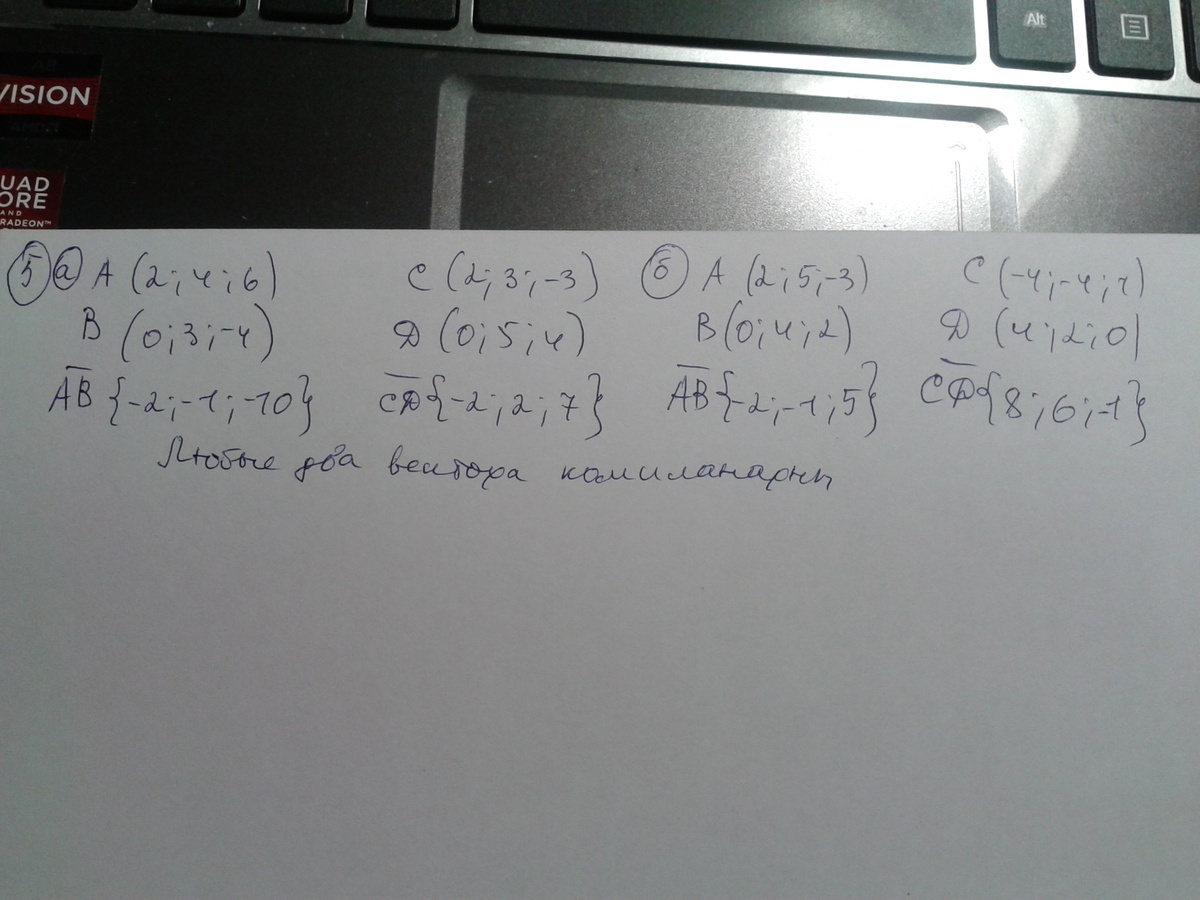 Alt
VISION
AMD
UAD
ORE
AND
RADEON™
5 а A (2; 4; 6) C (2; 3; -3) б A (2; 5; -3) C (-4; -4; 1)
B (0; 3; -4) D (0; 5; 4) B (0; 4; 2) D (4; 2; 0)
AB {-2; -1; -10} CD {-2; 2; 7} AB {-2; -1; 5} CD {8; 6; -1}
Любые два вектора компланарны